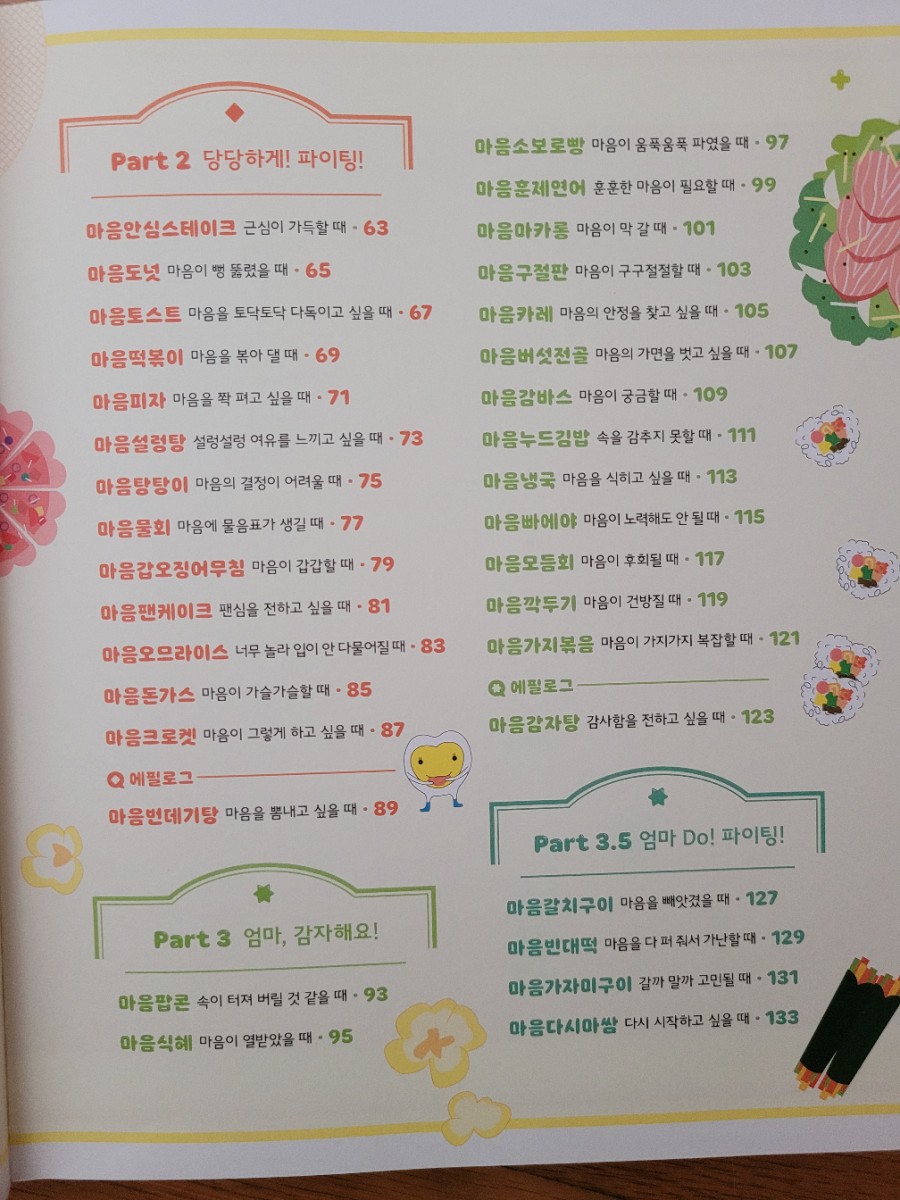 Part 2 당당하게! 파이팅!
마음안심스테이크 근심이 가득할 때 • 63
마음도넛 마음이 뻥 뚫렸을 때 • 65
마음토스트 마음을 토닥토닥 다독이고 싶을 때 • 67
마음떡볶이 마음을 볶아 댈 때 • 69
마음피자 마음을 쫙 펴고 싶을 때 • 71
마음설렁탕 설렁설렁 여유를 느끼고 싶을 때 • 73
마음탕탕이 마음의 결정이 어려울 때 • 75
마음물회 마음에 물음표가 생길 때 • 77
마음갑오징어무침 마음이 갑갑할 때 • 79
마음팬케이크 팬심을 전하고 싶을 때 • 81
마음오므라이스 너무 놀라 입이 안 다물어질 때 • 83
마음돈가스 마음이 가슬가슬할 때 • 85
마음크로켓 마음이 그렇게 하고 싶을 때 • 87
에필로그
마음번데기탕 마음을 뽐내고 싶을 때 • 89
Part 3 엄마, 감자해요!
마음팝콘 속이 터져 버릴 것 같을 때 • 93
마음식혜 마음이 열받았을 때 • 95
마음소보로빵 마음이 움푹움푹 파였을 때 • 97
마음훈제연어 훈훈한 마음이 필요할 때 • 99
마음마카롱 마음이 막 갈 때 • 101
마음구절판 마음이 구구절절할 때 • 103
마음카레 마음의 안정을 찾고 싶을 때 • 105
마음버섯전골 마음의 가면을 벗고 싶을 때 • 107
마음감바스 마음이 궁금할 때 • 109
마음누드김밥 속을 감추지 못할 때 • 111
마음냉국 마음을 식히고 싶을 때 • 113
마음빠에야 마음이 노력해도 안 될 때 • 115
마음모듬회 마음이 후회될 때 • 117
마음깍두기 마음이 건방질 때 • 119
마음가지볶음 마음이 가지가지 복잡할 때 • 121
에필로그
마음감자탕 감사함을 전하고 싶을 때 • 123
Part 3.5 엄마 Do! 파이팅!
마음갈치구이 마음을 빼앗겼을 때 • 127
마음빈대떡 마음을 다 퍼 줘서 가난할 때 • 129
마음가자미구이 갈까 말까 고민될 때 • 131
마음다시마쌈 다시 시작하고 싶을 때 • 133